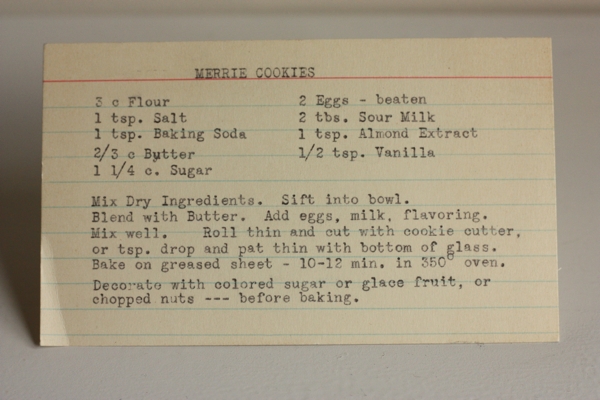 MERRIE COOKIES
3 c Flour
1 tsp. Salt
1 tsp. Baking Soda
2/3 c Butter
1 1/4 c. Sugar
2 Eggs - beaten
2 tbs. Sour Milk
1 tsp. Almond Extract
1/2 tsp. Vanilla
Mix Dry Ingredients. Sift into bowl.
Blend with Butter. Add eggs, milk, flavoring.
Mix well. Roll thin and cut with cookie cutter,
or tsp. drop and pat thin with bottom of glass.
Bake on greased sheet - 10-12 min. in 350° oven.
Decorate with colored sugar or glace fruit, or
chopped nuts --- before baking.